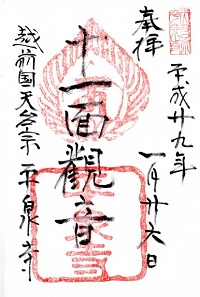 奉拝
平成廿九年
一月廿六日
十一面觀音
越前国天台宗 平泉寺